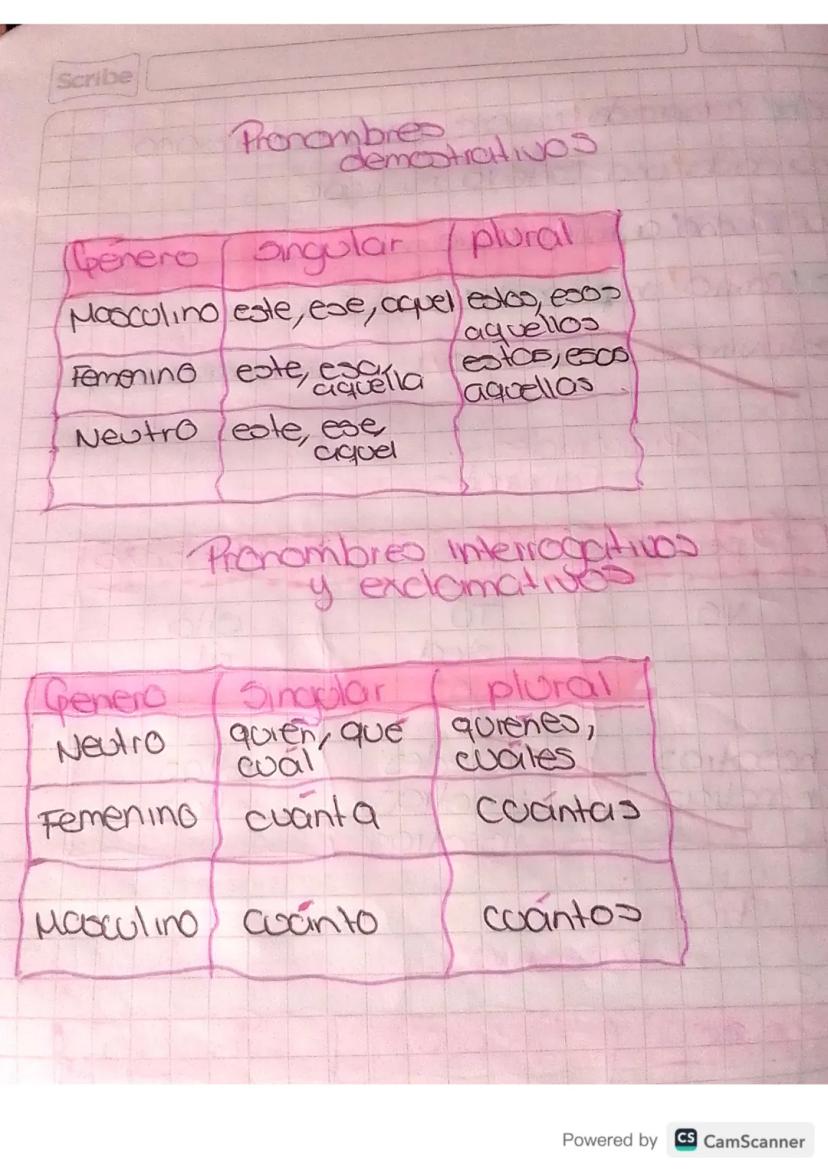 Scribe
Pronombres
demostrativos
Género singular plural
Masculino este, ese, aquel estos, esos
aquellos
Femenino este, esa, estas, esos
aquella aquellos
Neutro este, ese,
aquel
Pronombres interrogativos
y exclamativos
Género Singular plural
Neutro quién, qué quiénes,
cuál cuáles
Femenino cuánta cuántas
Masculino cuánto cuántos
Powered by CS CamScanner